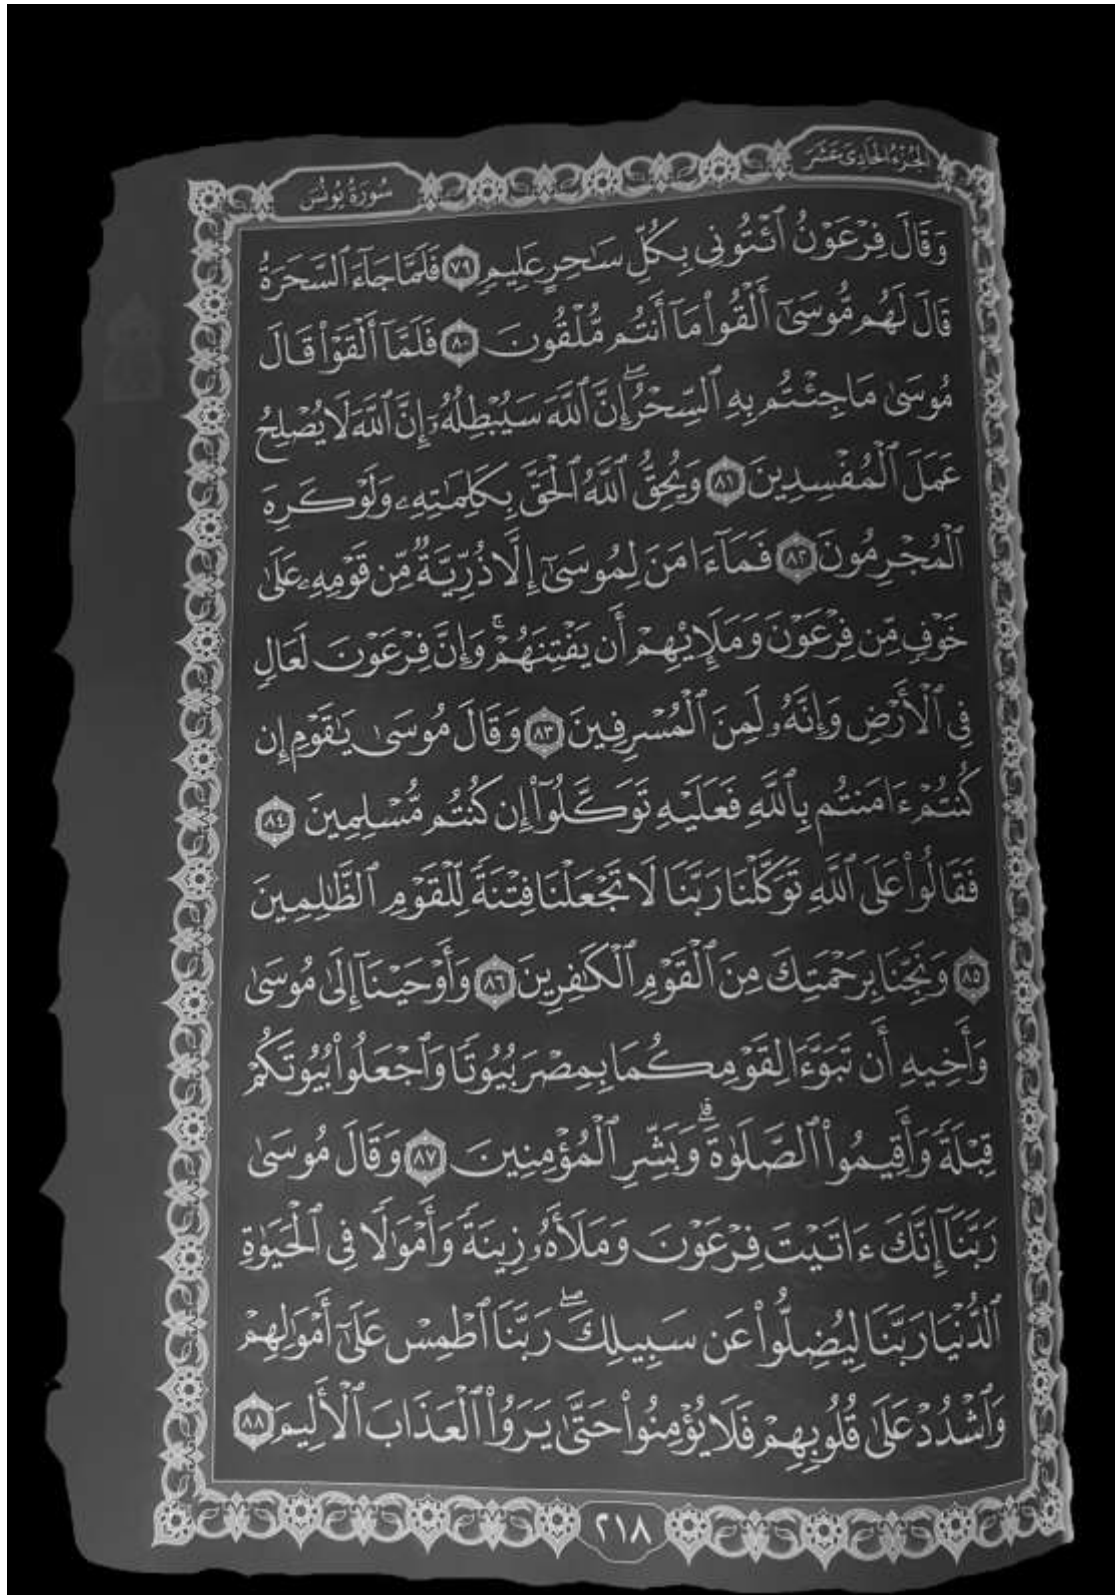 الجزء الحادي عشر
سورة يونس
وَقَالَ فِرْعَوْنُ ٱئْتُونِى بِكُلِّ سَـٰحِرٍ عَلِيمٍ ٧٩ فَلَمَّا جَآءَ ٱلسَّحَرَةُ
قَالَ لَهُم مُّوسَىٰٓ أَلْقُوا۟ مَآ أَنتُم مُّلْقُونَ ٨٠ فَلَمَّآ أَلْقَوْا۟ قَالَ
مُوسَىٰ مَا جِئْتُم بِهِ ٱلسِّحْرُ ۖ إِنَّ ٱللَّهَ سَيُبْطِلُهُۥٓ إِنَّ ٱللَّهَ لَا يُصْلِحُ
عَمَلَ ٱلْمُفْسِدِينَ ٨١ وَيُحِقُّ ٱللَّهُ ٱلْحَقَّ بِكَلِمَـٰتِهِۦ وَلَوْ كَرِهَ
ٱلْمُجْرِمُونَ ٨٢ فَمَآ ءَامَنَ لِمُوسَىٰٓ إِلَّا ذُرِّيَّةٌ مِّن قَوْمِهِۦ عَلَىٰ
خَوْفٍ مِّن فِرْعَوْنَ وَمَلَإِي۟هِمْ أَن يَفْتِنَهُمْ ۚ وَإِنَّ فِرْعَوْنَ لَعَالٍ
فِى ٱلْأَرْضِ وَإِنَّهُۥ لَمِنَ ٱلْمُسْرِفِينَ ٨٣ وَقَالَ مُوسَىٰ يَـٰقَوْمِ إِن
كُنتُمْ ءَامَنتُم بِٱللَّهِ فَعَلَيْهِ تَوَكَّلُوٓا۟ إِن كُنتُم مُّسْلِمِينَ ٨٤
فَقَالُوا۟ عَلَى ٱللَّهِ تَوَكَّلْنَا رَبَّنَا لَا تَجْعَلْنَا فِتْنَةً لِّلْقَوْمِ ٱلظَّـٰلِمِينَ
٨٥ وَنَجِّنَا بِرَحْمَتِكَ مِنَ ٱلْقَوْمِ ٱلْكَـٰفِرِينَ ٨٦ وَأَوْحَيْنَآ إِلَىٰ مُوسَىٰ
وَأَخِيهِ أَن تَبَوَّءَا لِقَوْمِكُمَا بِمِصْرَ بُيُوتًا وَٱجْعَلُوا۟ بُيُوتَكُمْ
قِبْلَةً وَأَقِيمُوا۟ ٱلصَّلَوٰةَ ۗ وَبَشِّرِ ٱلْمُؤْمِنِينَ ٨٧ وَقَالَ مُوسَىٰ
رَبَّنَآ إِنَّكَ ءَاتَيْتَ فِرْعَوْنَ وَمَلَأَهُۥ زِينَةً وَأَمْوَٰلًا فِى ٱلْحَيَوٰةِ
ٱلدُّنْيَا رَبَّنَا لِيُضِلُّوا۟ عَن سَبِيلِكَ ۖ رَبَّنَا ٱطْمِسْ عَلَىٰٓ أَمْوَٰلِهِمْ
وَٱشْدُدْ عَلَىٰ قُلُوبِهِمْ فَلَا يُؤْمِنُوا۟ حَتَّىٰ يَرَوُا۟ ٱلْعَذَابَ ٱلْأَلِيمَ ٨٨
٢١٨